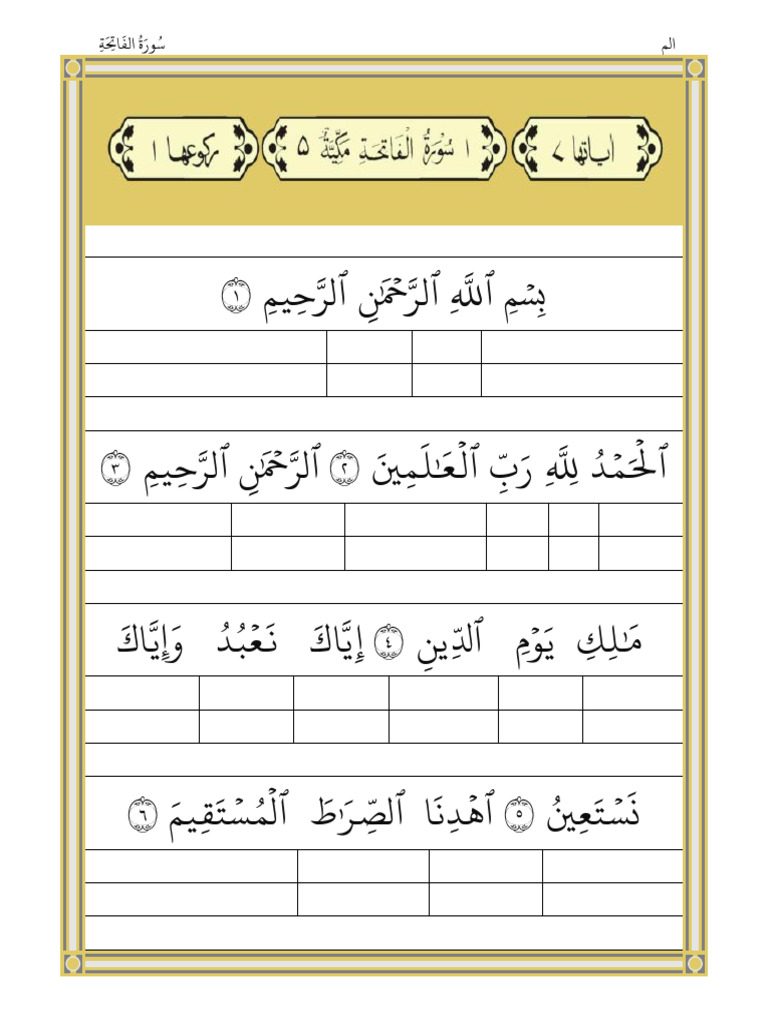 الم سُورَةُ الفَاتِحَةِ
اٰیاتها ۷ ۱ سُوْرَةُ الْفَاتِحَةِ مَكِّيَّةٌ ۵ ركوعها ۱
بِسۡمِ ٱللَّهِ ٱلرَّحۡمَٰنِ ٱلرَّحِيمِ ١
ٱلۡحَمۡدُ لِلَّهِ رَبِّ ٱلۡعَٰلَمِينَ ٢ ٱلرَّحۡمَٰنِ ٱلرَّحِيمِ ٣
مَٰلِكِ يَوۡمِ ٱلدِّينِ ٤ إِيَّاكَ نَعۡبُدُ وَإِيَّاكَ
نَسۡتَعِينُ ٥ ٱهۡدِنَا ٱلصِّرَٰطَ ٱلۡمُسۡتَقِيمَ ٦